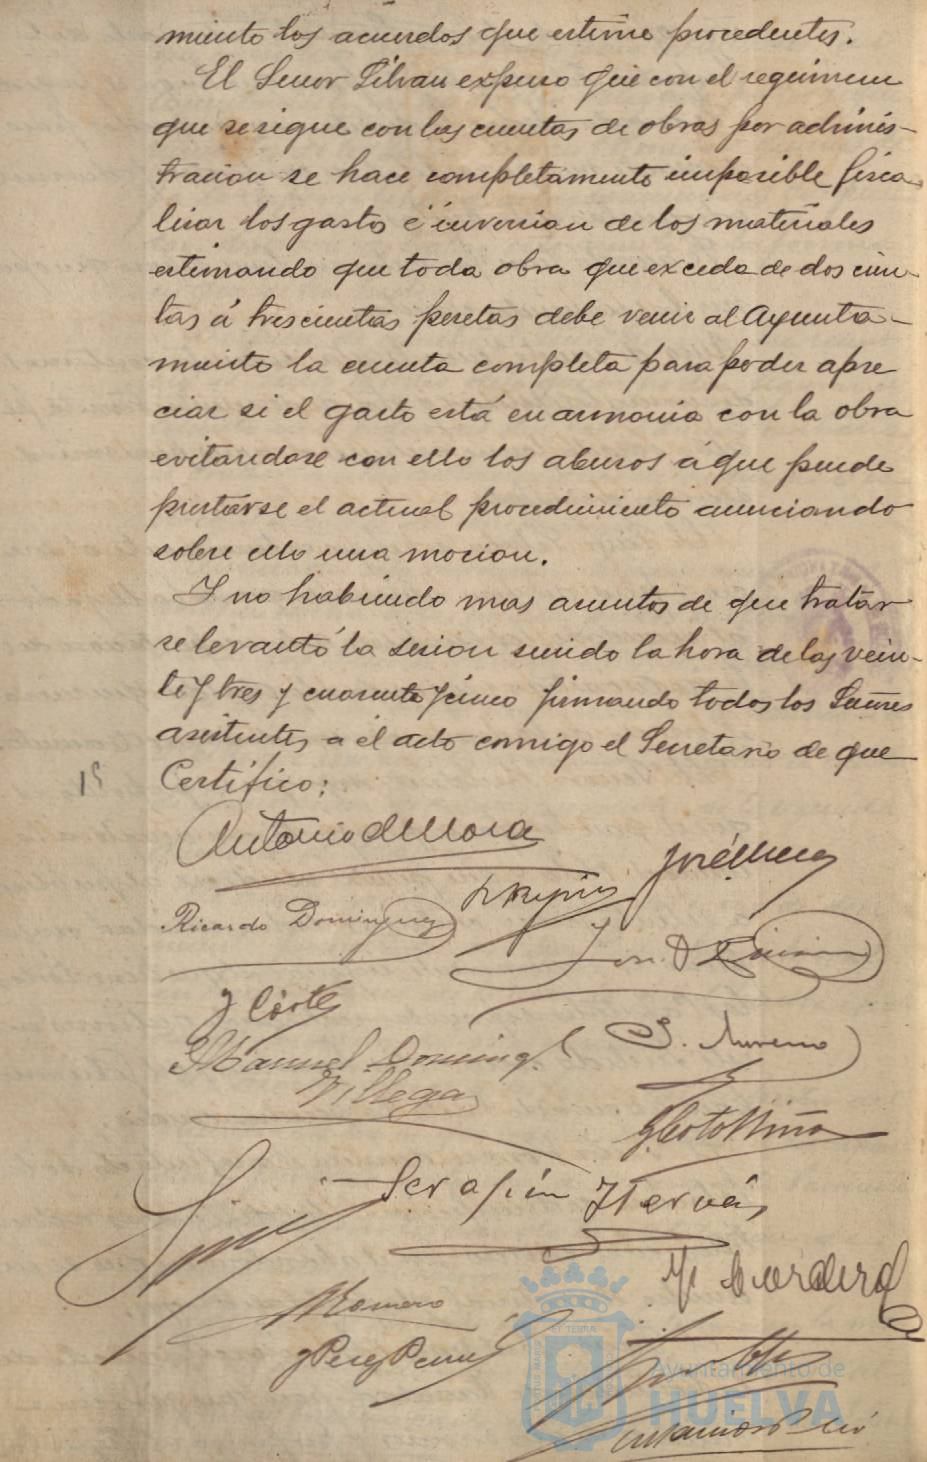 miento los acuerdos que estime procedentes.
El Señor Silvan expuso que con el regimem
que se sigue con las cuentas de obras por adminis-
tracion se hace completamente imposible fisca
lizar los gastos é inversion de los materiales
estimando que toda obra que exceda de doscien-
tas á trescientas pesetas debe venir al Ayunta-
miento la cuenta completa para poder apre
ciar si el gasto está en armonia con la obra
evitandose con ello los abusos á que puede
prestarse el actual procedimiento anunciando
sobre ello una mocion.
Y no habiendo mas asuntos de que tratar
se levantó la sesion siendo la hora de las vein-
te y tres y cuarenta y cinco firmando todos los Señores
asistentes a el acto comigo el Secretario de que
Certifico:
Antonio de Mora
José
Ricardo Dominguez
José
J Cortes
S. Moreno
Manuel Doming.
Villegas
J Coto Niño
Serafin Hervás
M Cordero
Romero
J Perez
Ayuntamiento de
HUELVA